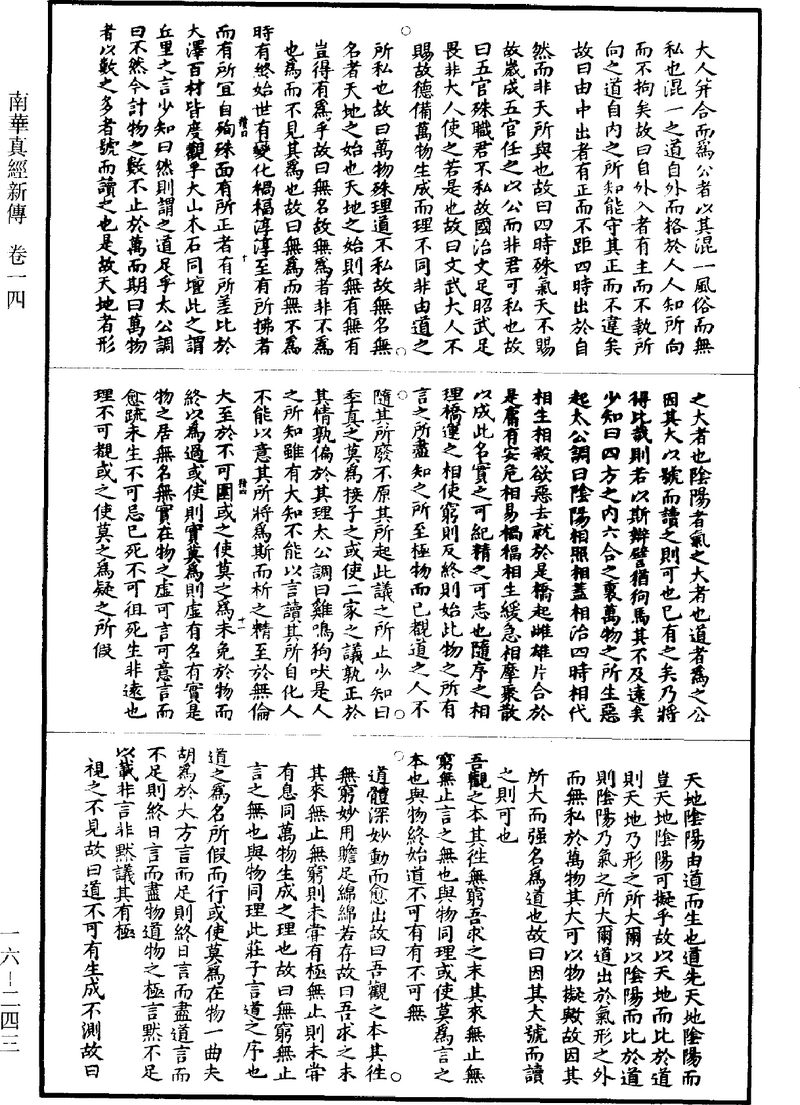 南華真經新傳　卷一四
大人并合而為公者以其混一風俗而無
私也混一之道自外而格於人人知所向
而不拘矣故曰自外入者有主而不執所
向之道自内之所知能守其正而不違矣
故曰由中出者有正而不距四時出於自
然而非天所與也故曰四時殊氣天不賜
故歲成五官任之以公而非君可私也故
曰五官殊職君不私故國治文足昭武足
畏非大人使之若是也故曰文武大人不
賜故德備萬物生成而理不同非由道之
所私也故曰萬物殊理道不私故無名無
名者天地之始也天地之始則無有無有
豈得有為乎故曰無名故無為者非不為
也為而不見其為也故曰無為而無不為
時有終始世有變化禍福淳淳至有所拂者
而有所宜自殉殊面有所正者有所差比於
大澤百材皆度觀乎大山木石同壇此之謂
丘里之言少知曰然則謂之道足乎太公調
曰不然今計物之數不止於萬而期曰萬物
者以數之多者號而讀之也是故天地者形
之大者也陰陽者氣之大者也道者為之公
因其大以號而讀之則可也已有之矣乃將
得比哉則若以斯辯譬猶狗馬其不及遠矣
少知曰四方之内六合之裏萬物之所生惡
起太公調曰陰陽相照相蓋相治四時相代
相生相殺欲惡去就於是橋起雌雄片合於
是庸有安危相易禍福相生緩急相摩聚散
以成此名實之可紀精之可志也隨序之相
理橋運之相使窮則反終則始此物之所有
言之所盡知之所至極物而已覩道之人不
隨其所廢不原其所起此議之所止少知曰
季真之莫為接子之或使二家之議孰正於
其情孰偏於其理太公調曰雞鳴狗吠是人
之所知雖有大知不能以言讀其所自化人
不能以意其所將為斯而析之精至於無倫
大至於不可圍或之使莫之為未免於物而
終以為過或使則實莫為則虛有名有實是
物之居無名無實在物之虛可言可意言而
愈疏未生不可忌已死不可徂死生非遠也
理不可覩或之使莫之為疑之所假
天地陰陽由道而生也道先天地陰陽而
豈天地陰陽可擬乎故以天地而比於道
則天地乃形之所大爾以陰陽而比於道
則陰陽乃氣之所大爾道出於氣形之外
而無私於萬物其大可以物擬歟故因其
所大而强名為道也故曰因其大號而讀
之則可也
吾觀之本其往無窮吾求之末其來無止無
窮無止言之無也與物同理或使莫為言之
本也與物終始道不可有有不可無
道體深妙動而愈出故曰吾觀之本其往
無窮妙用贍足綿綿若存故曰吾求之末
其來無止無窮則未甞有極無止則未甞
有息同萬物生成之理也故曰無窮無止
言之無也與物同理此莊子言道之序也
道之為名所假而行或使莫為在物一曲夫
胡為於大方言而足則終日言而盡道言而
不足則終日言而盡物道物之極言默不足
以載非言非默議其有極
視之不見故曰道不可有生成不測故曰
一六－二四三